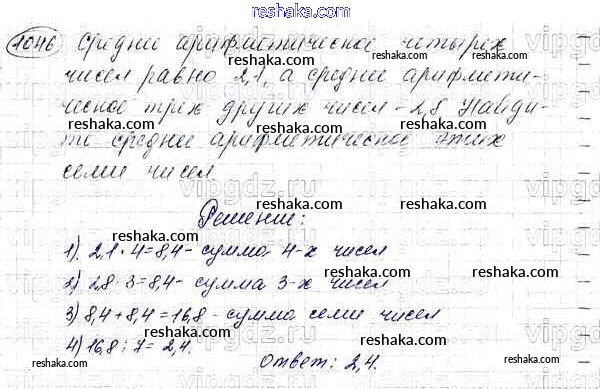 1046 Среднее арифметическое четырех
чисел равно 2,1, а среднее арифмети-
ческое трех других чисел - 2,8 Найди-
те среднее арифметическое этих
семи чисел
Решение:
1). 2,1 · 4 = 8,4 - сумма 4-х чисел
2) 2,8 · 3 = 8,4 - сумма 3-х чисел
3) 8,4 + 8,4 = 16,8 - сумма семи чисел
4) 16,8 : 7 = 2,4.
Ответ: 2,4.
reshaka.com
reshaka.com
reshaka.com
reshaka.com
reshaka.com
reshaka.com
reshaka.com
reshaka.com
reshaka.com
reshaka.com
reshaka.com
reshaka.com
reshaka.com
reshaka.com